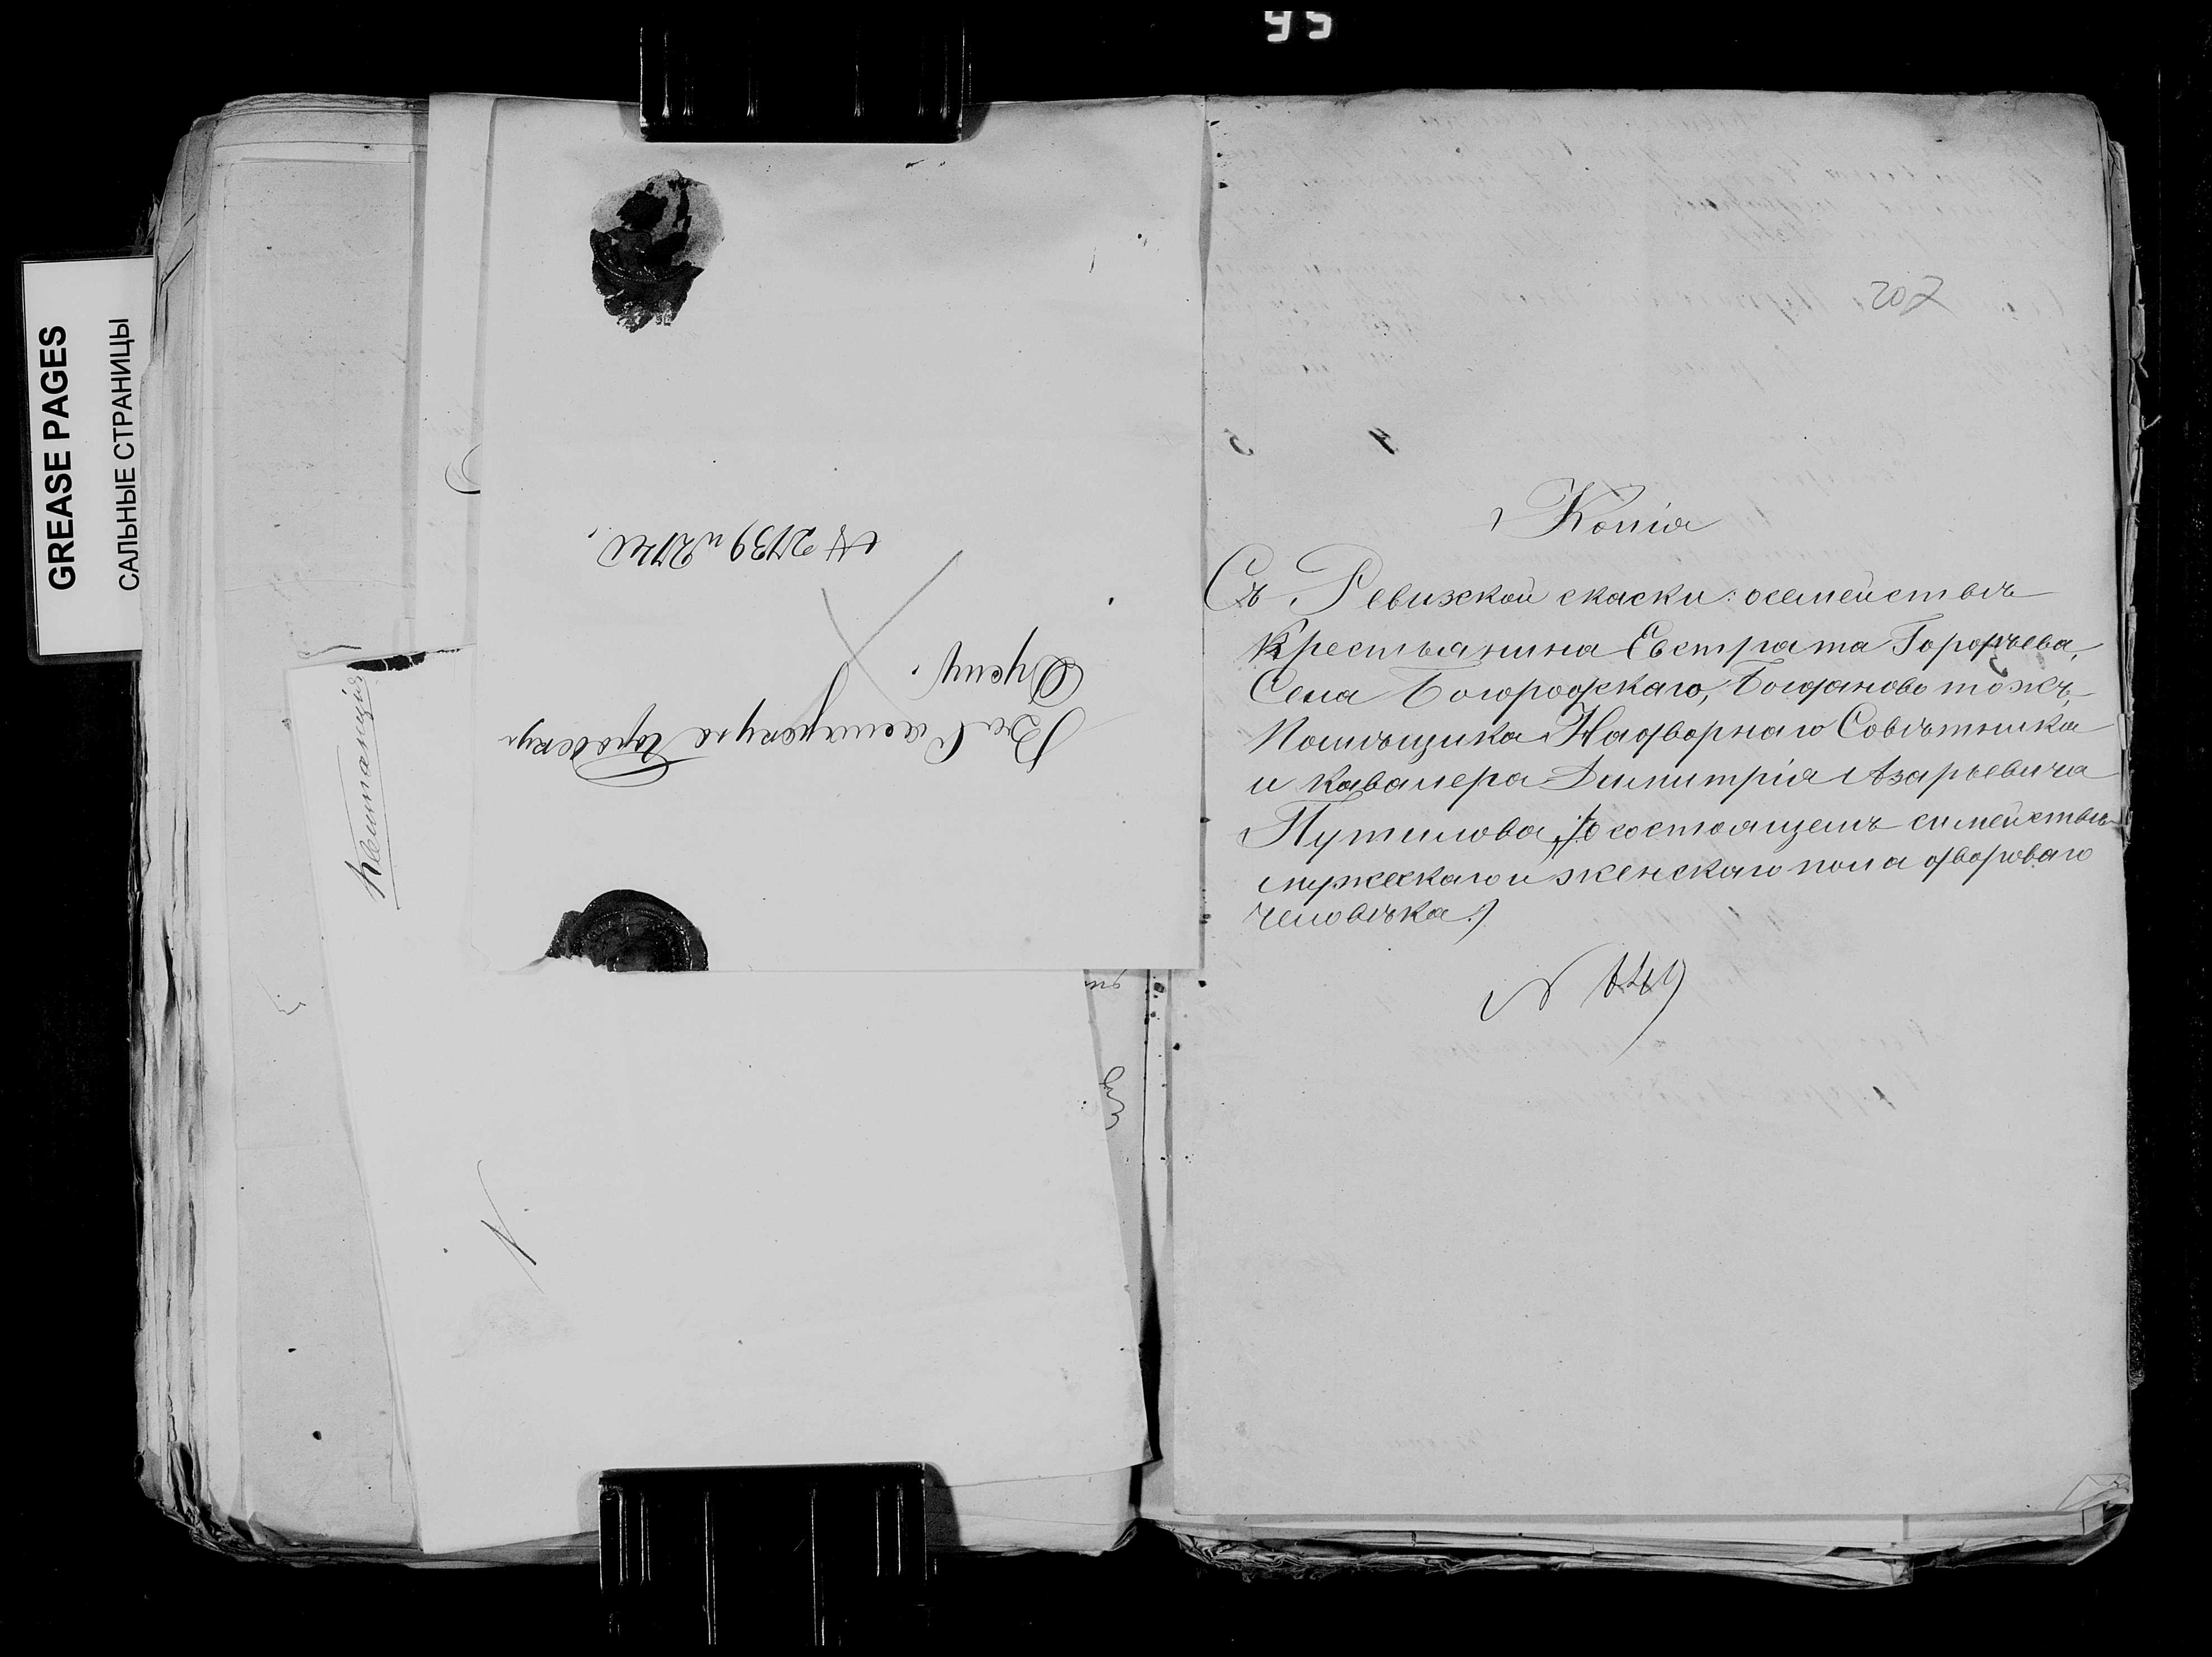 95
GREASE PAGES
САЛЬНЫЕ СТРАНИЦЫ
Квитанція
Въ Самарскую Городскую
Думу.
№ 2739 и 2740,
207
Копія
Съ Ревизской скаски: осемействѣ
Крестьянина Евстрата Гордѣева,
Села Богородскаго, Богданово тожъ,
Помѣщика Надворнаго Совѣтника
и Кавалера Димитрія Азарьевича
Путилова, /о состоящемъ семействѣ
мужескаго и женскаго пола двороваго
человѣка./
№